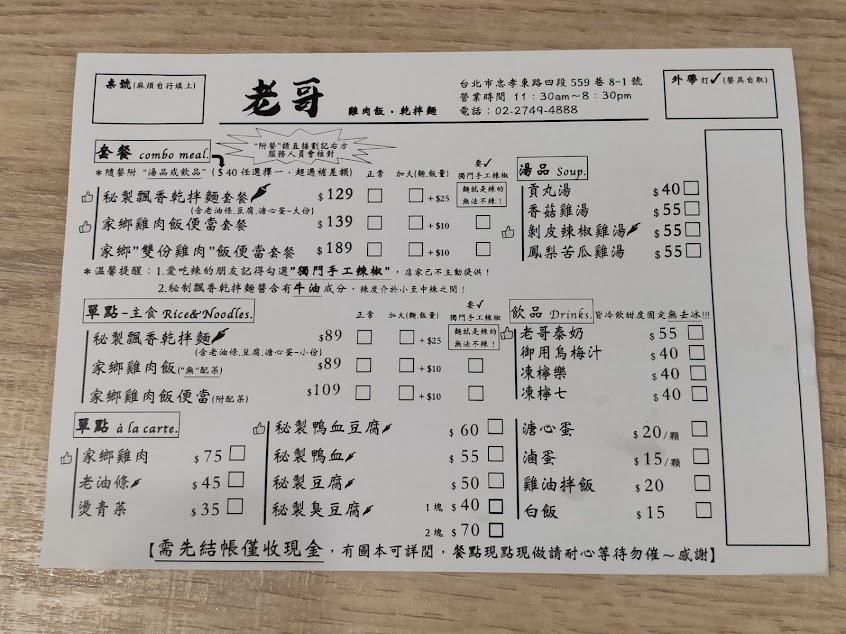 桌號(麻煩自行填上)
老哥 雞肉飯·乾拌麵
台北市忠孝東路四段 559 巷 8-1 號
營業時間 11:30am~8:30pm
電話:02-2749-4888
外帶打✓(餐具自取)
套餐 combo meal.
"附餐"請直接劃記右方
服務人員會核對
*隨餐附 "湯品或飲品" ($40 任選擇一，超過補差額)
正常 加大(麵,飯量) 要✓ 獨門手工辣椒
秘製飄香乾拌麵套餐 $129 □ □ +$25 麵就是辣的 無法不辣!
(含老油條.豆腐.溏心蛋-大份)
家鄉雞肉飯便當套餐 $139 □ □ +$10 □
家鄉"雙份雞肉"飯便當套餐 $189 □ □ +$10 □
*溫馨提醒:1.愛吃辣的朋友記得勾選"獨門手工辣椒"，店家已不主動提供!
2.秘制飄香乾拌麵醬含有牛油成分，辣度介於小至中辣之間!
湯品 Soup.
貢丸湯 $40 □
香菇雞湯 $55 □
剝皮辣椒雞湯 $55 □
鳳梨苦瓜雞湯 $55 □
單點-主食 Rice&Noodles.
正常 加大(麵,飯量) 要✓ 獨門手工辣椒
秘製飄香乾拌麵 $89 □ □ +$25 麵就是辣的 無法不辣!
(含老油條.豆腐.溏心蛋-小份)
家鄉雞肉飯("無"配菜) $89 □ □ +$10 □
家鄉雞肉飯便當(附配菜) $109 □ □ +$10 □
飲品 Drinks. 皆冷飲甜度固定無去冰!!!
老哥泰奶 $55 □
御用烏梅汁 $40 □
凍檸樂 $40 □
凍檸七 $40 □
單點 à la carte.
家鄉雞肉 $75 □
老油條 $45 □
燙青菜 $35 □
秘製鴨血豆腐 $60 □
秘製鴨血 $55 □
秘製豆腐 $50 □
秘製臭豆腐 1塊 $40 □
2塊 $70 □
溏心蛋 $20/顆 □
滷蛋 $15/顆 □
雞油拌飯 $20 □
白飯 $15 □
【需先結帳僅收現金，有圖本可詳閱，餐點現點現做請耐心等待勿催~感謝】